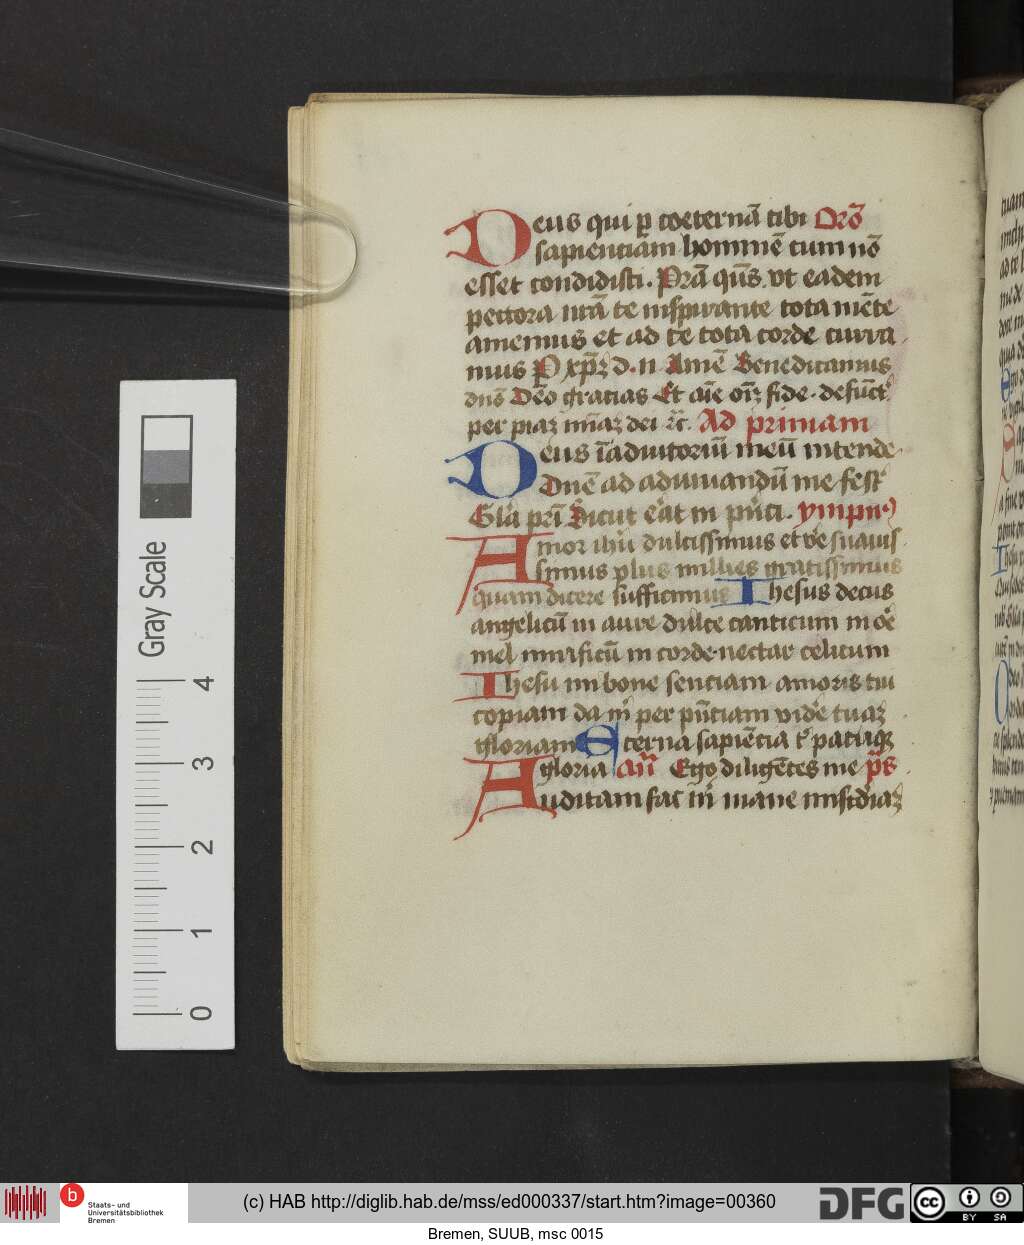 Deus qui p coeternā tibi Orō
sapientiam hominē cum nō
esset condidisti. Prā qūs vt eadem
pectora nrā te inspirante tota mēte
amemus et ad te tota corde curra
mus P xpm d. n Amē Benedicamus
dno Deo gracias Et aīe oīm fide. defūct
per piam mīam dei rc. Ad primam
Deus ī adiutoriū meū intende
Dnē ad adiuuandū me fest
Glā prī Sicut erat in pnci. ympn
Amor ihu dulcissimus et ve suauis
simus plus millies gratissimus
quam dicere sufficimus Ihesus decus
angelicū in aure dulce canticum in oē
mel mirificū in corde nectar celicum
Ihesu mi bone senciam amoris tui
copiam da m per pnciam videre tuam
gloriam Eterna sapiēcia t patriqz
gloria Añ Ego diligētes me ps
Auditam fac m mane misdiam
Gray Scale
4
3
2
1
0
b
Staats- und
Universitätsbibliothek
Bremen
(c) HAB http://diglib.hab.de/mss/ed000337/start.htm?image=00360
DFG
cc BY SA
Bremen, SUUB, msc 0015